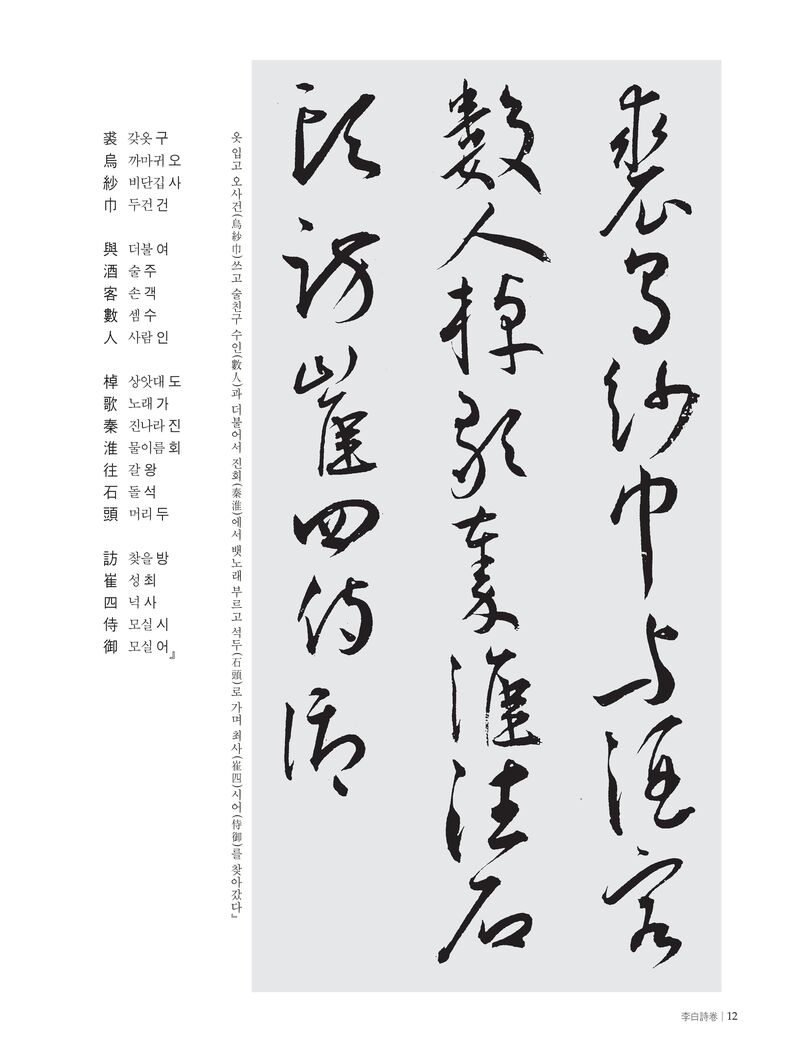 裘烏紗巾與酒客
數人棹歌秦淮往石
頭訪崔四侍御
옷 입고 오사건(烏紗巾)쓰고 술친구 수인(數人)과 더불어서 진회(秦淮)에서 뱃노래 부르고 석두(石頭)로 가며 최사(崔四)시어(侍御)를 찾아갔다』
裘 갖옷 구
烏 까마귀 오
紗 비단깁 사
巾 두건 건
與 더불 여
酒 술 주
客 손 객
數 셈 수
人 사람 인
棹 상앗대 도
歌 노래 가
秦 진나라 진
淮 물이름 회
往 갈 왕
石 돌 석
頭 머리 두
訪 찾을 방
崔 성 최
四 넉 사
侍 모실 시
御 모실 어』
李白詩卷 | 12